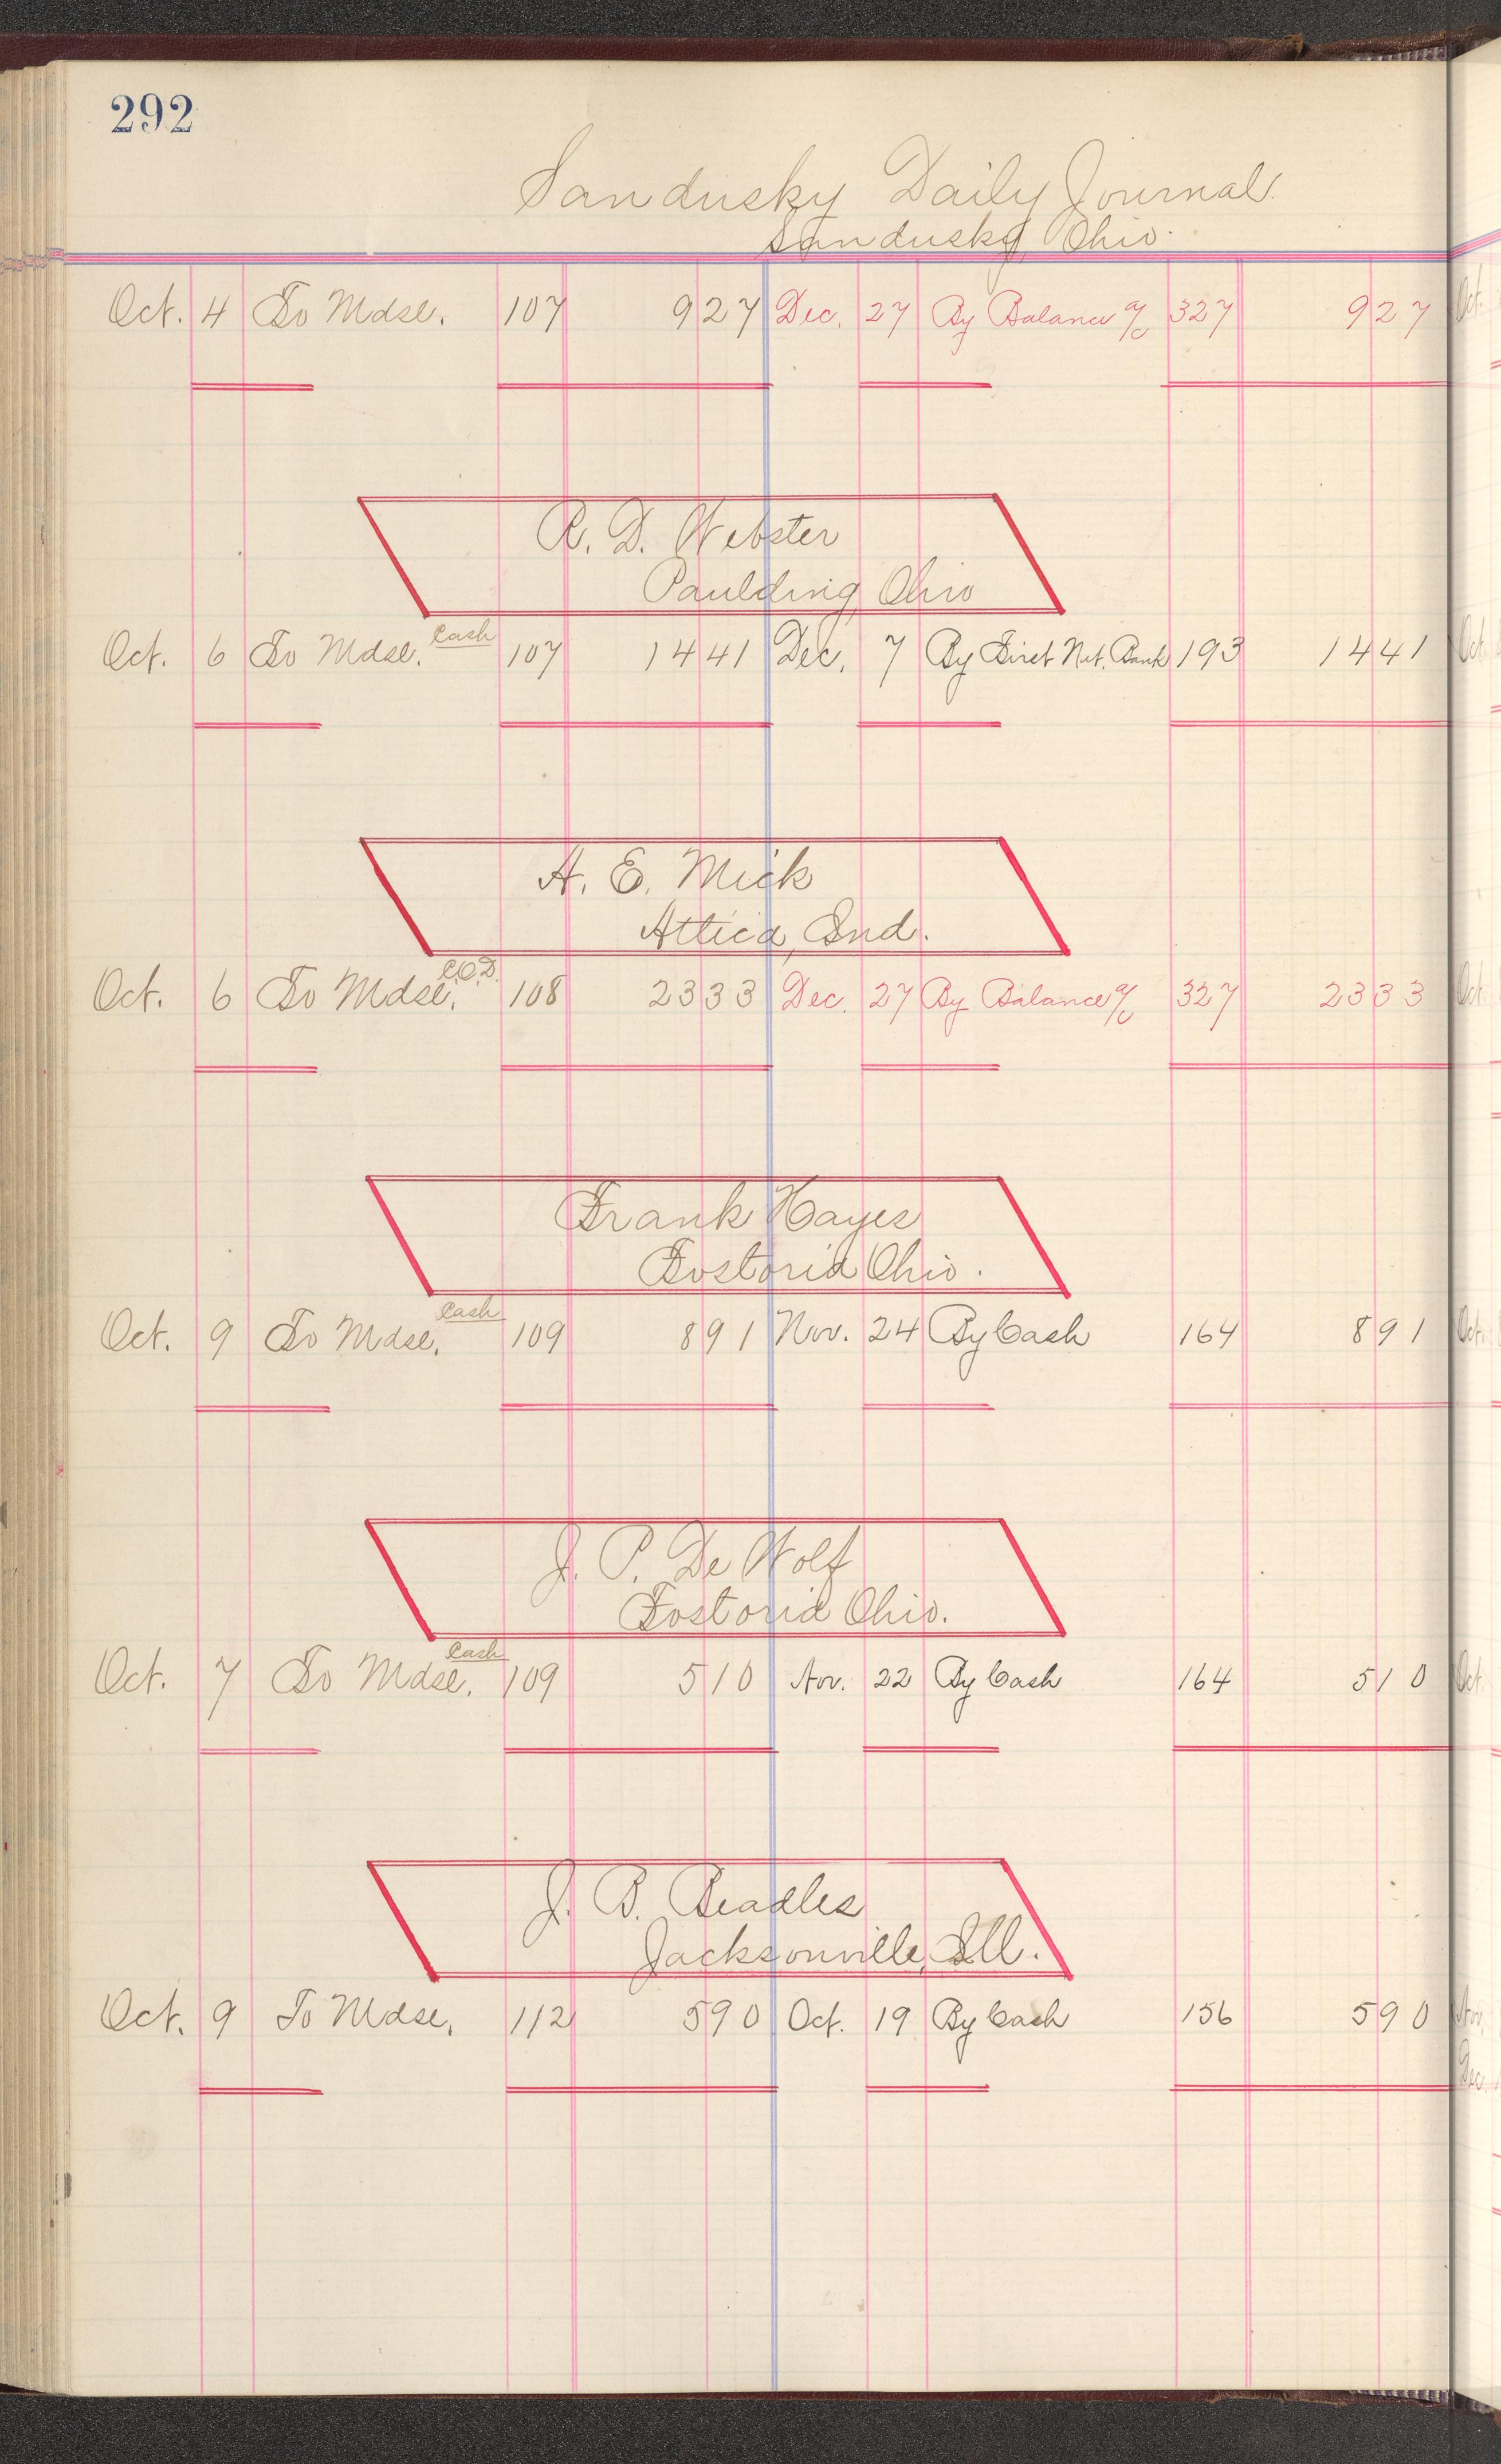 292
Sandusky Daily Journal.
Sandusky, Ohio.
Oct. 4 To Mdse. 107 9 27 Dec. 27 By Balance a/c 327 9 27
R. D. Webster
Paulding, Ohio
Oct. 6 To Mdse. Cash 107 14 41 Dec. 7 By First Nat. Bank 193 14 41
A. E. Mick
Attica, Ind.
Oct. 6 To Mdse. C.O.D. 108 23 33 Dec. 27 By Balance a/c 327 23 33
Frank Hayes
Fostoria Ohio.
Oct. 9 To Mdse. Cash 109 8 91 Nov. 24 By Cash 164 8 91
J. P. De Wolf
Fostoria Ohio.
Oct. 7 To Mdse. Cash 109 5 10 Nov. 22 By Cash 164 5 10
J. B. Beadles
Jacksonville, Ill.
Oct. 9 To Mdse. 112 5 90 Oct. 19 By Cash 156 5 90